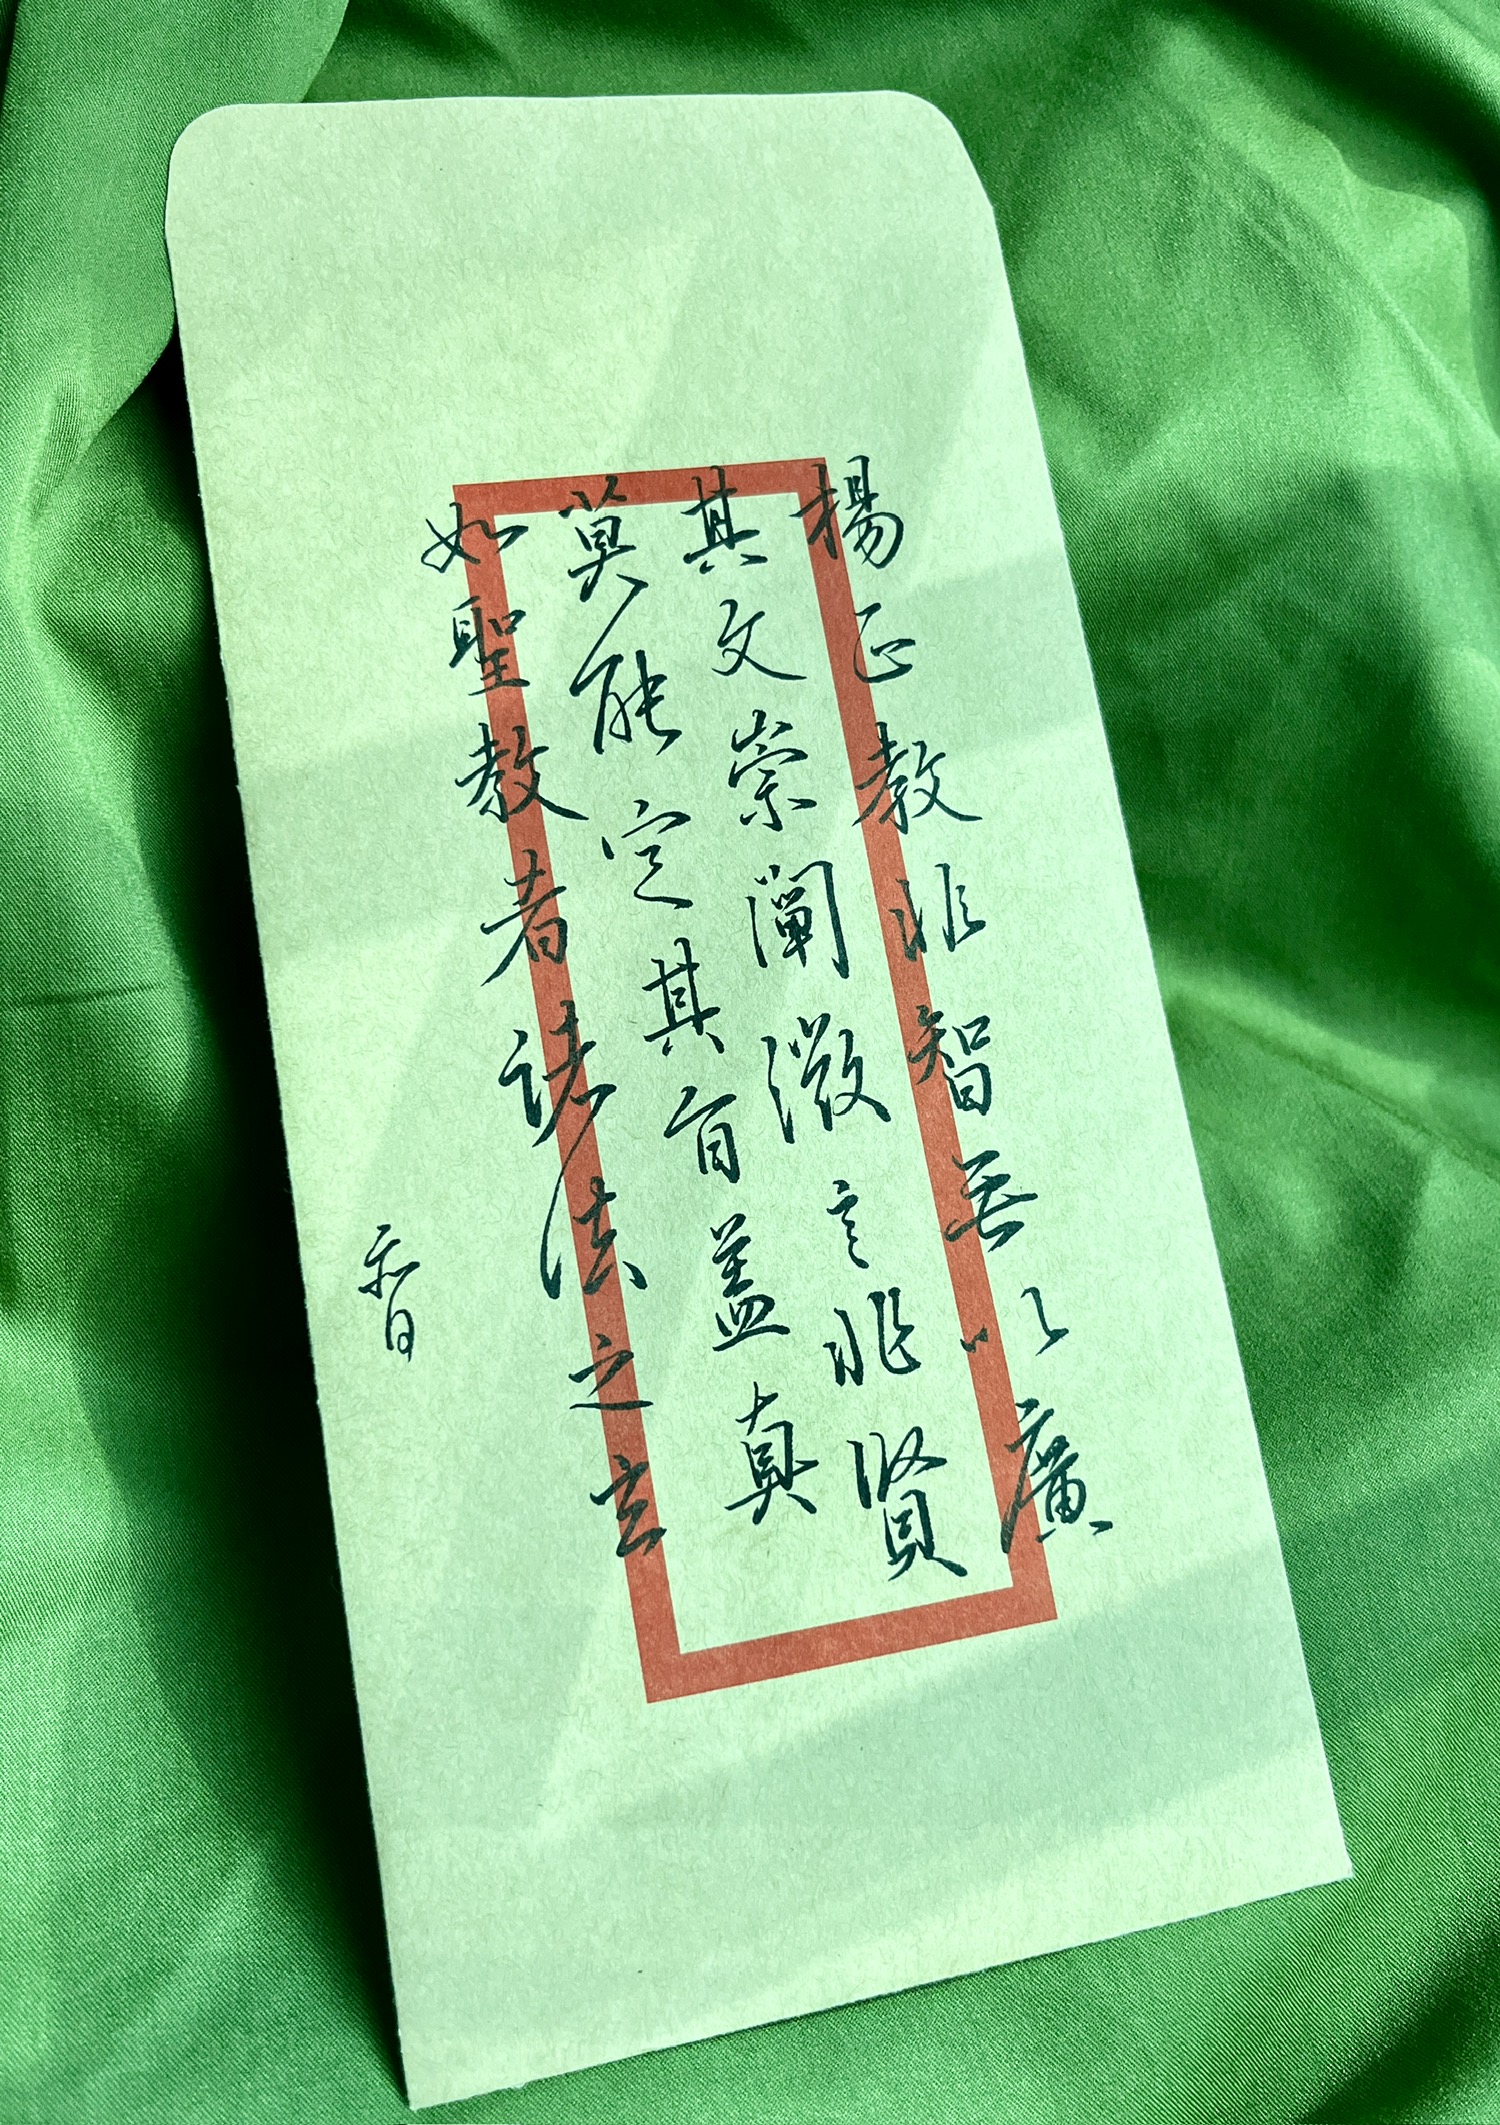 揚正教非智無以廣
其文崇闡微言非賢
莫能定其旨蓋真
如聖教者諸法之玄
香